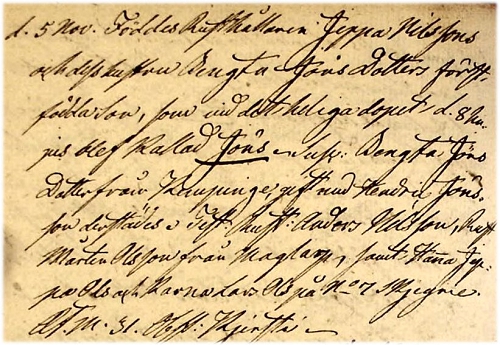 d. 5 Nov. Föddes Rusthållaren Jeppa Nilssons
och dess hustru Bengta Jöns Dotters först
födda son, som vid det heliga dopet d. 8 hu-
jus blef kallad Jöns. Susc: Bengta Jöns
Dotter från Kempinge, gift med Hendric Jöns-
son derstädes. Test. Rust: Anders Nilsson, Rust
Mårten Olsson från Maglarp, samt Hanna Jep-
pa Ols och Karna Lars Ols på No 7 Skegrie.
M. 31.